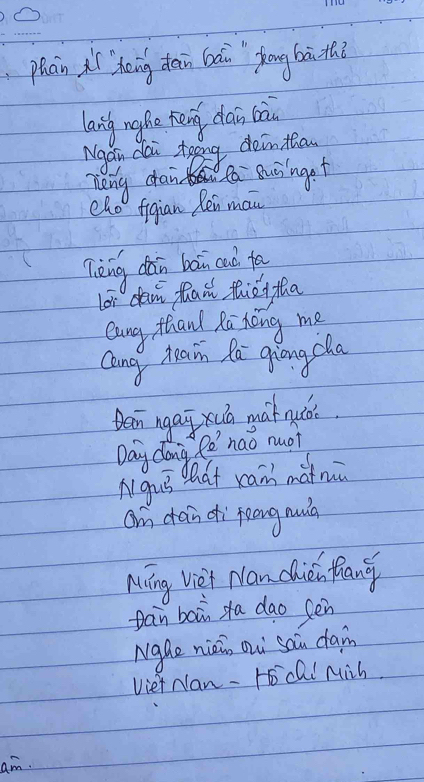 . phân tích "tiếng đàn bầu" trong bài thơ
lắng nghe tiếng đàn bầu
Ngân dài trong đêm thau
Tiếng đàn là suối ngọt
cho t/gian lên màu
Tiếng đàn bầu của ta
lời đằm thắm thiết tha
Cung thanh là tiếng mẹ
Cung trầm là giọng cha
Đàn ngày xưa mất nước
Dây đồng lẻ não nuột
Người hát xẩm mắt mù
Ôm đàn đi trong mưa
Mừng Việt Nam chiến thắng
Đàn bầu ta dạo lên
Nghe niềm vui sâu đậm
Việt Nam - Hồ Chí Minh.
am.